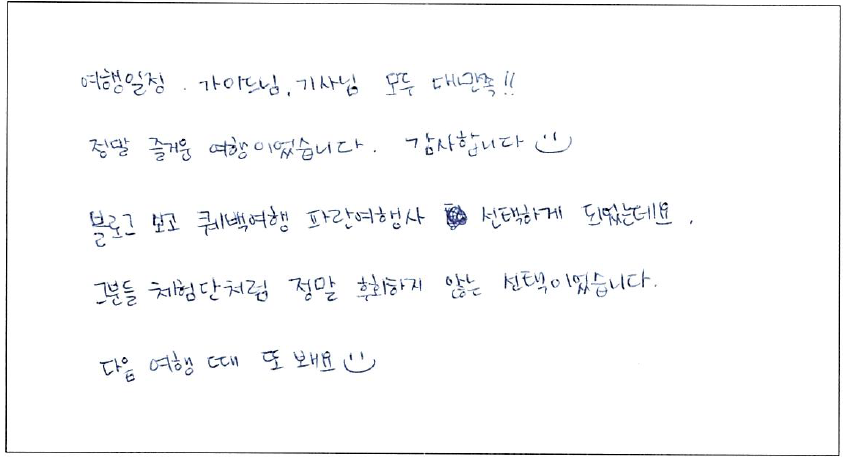 여행일정. 가이드님, 기사님 모두 대만족!!
정말 즐거운 여행이었습니다. 감사합니다
블로그 보고 퀘백여행 파란여행사 선택하게 되었는데요.
그분들 체험단처럼 정말 후회하지 않는 선택이었습니다.
다음 여행 때 또 봬요